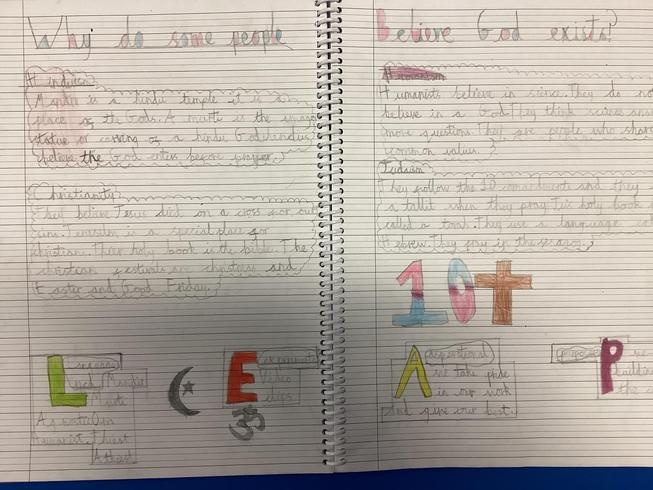 Why do some people Believe God exists?
Hinduism
Mandir is a hindu temple it is a
place of the Gods. A murti is the image
statue or carving of a hindu God. Hindus
believe the God enters before prayer.
Christianity
They believe Jesus died on a cross for our
sins. Jerusalem is a special place for
christians. Their holy book is the bible. The
christian festivals are christmas and
Easter and Good Friday.
Humanism
Humanists believe in science. They do no
believe in a God. They think science
more questions. They are people who share
common values.
Judaism
They follow the 10 comandments and they
a tallit when they pray. Their holy book
called a They use a language
Hebrew. They pray in the
10
L
Mandir
Murti
Humanist
Atheist
E
Video
clips
ॐ
A
aspirational
we take pride
in our work
and give our best.
P